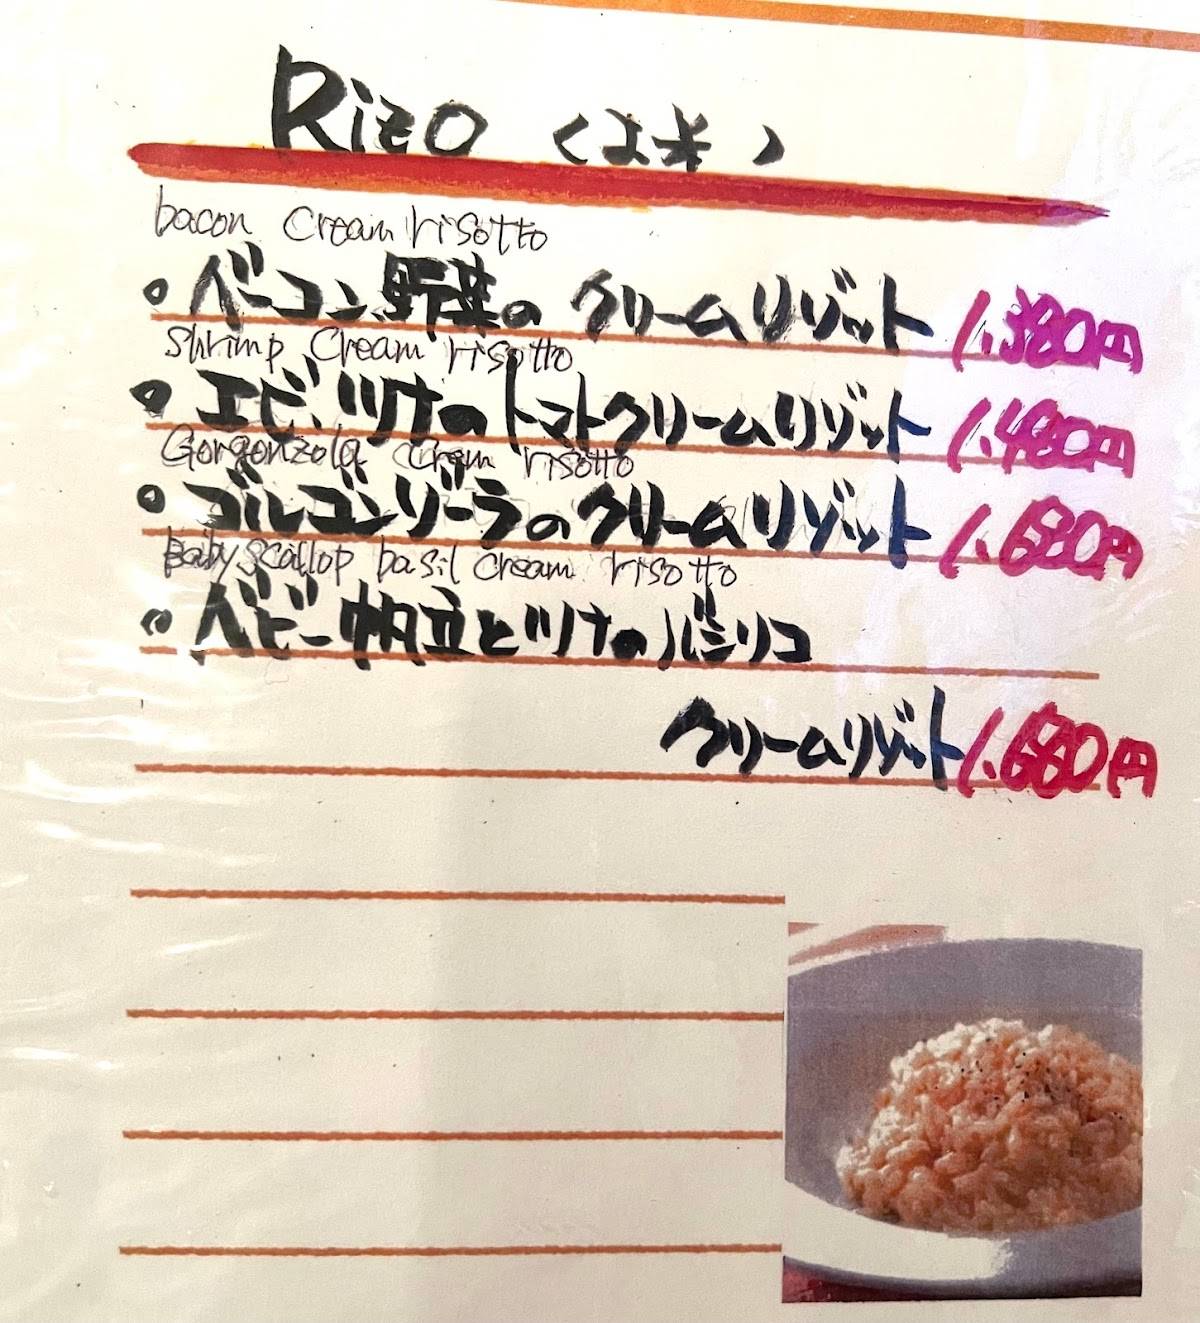 Rizo <お米>
bacon cream risotto
・ベーコン野菜のクリームリゾット 1.380円
shrimp cream risotto
・エビ、ツナのトマトクリームリゾット 1.480円
Gorgonzola cream risotto
・ゴルゴンゾーラのクリームリゾット 1.680円
Baby scallop basil cream risotto
・ベビー帆立とツナのバジリコ
クリームリゾット 1.680円